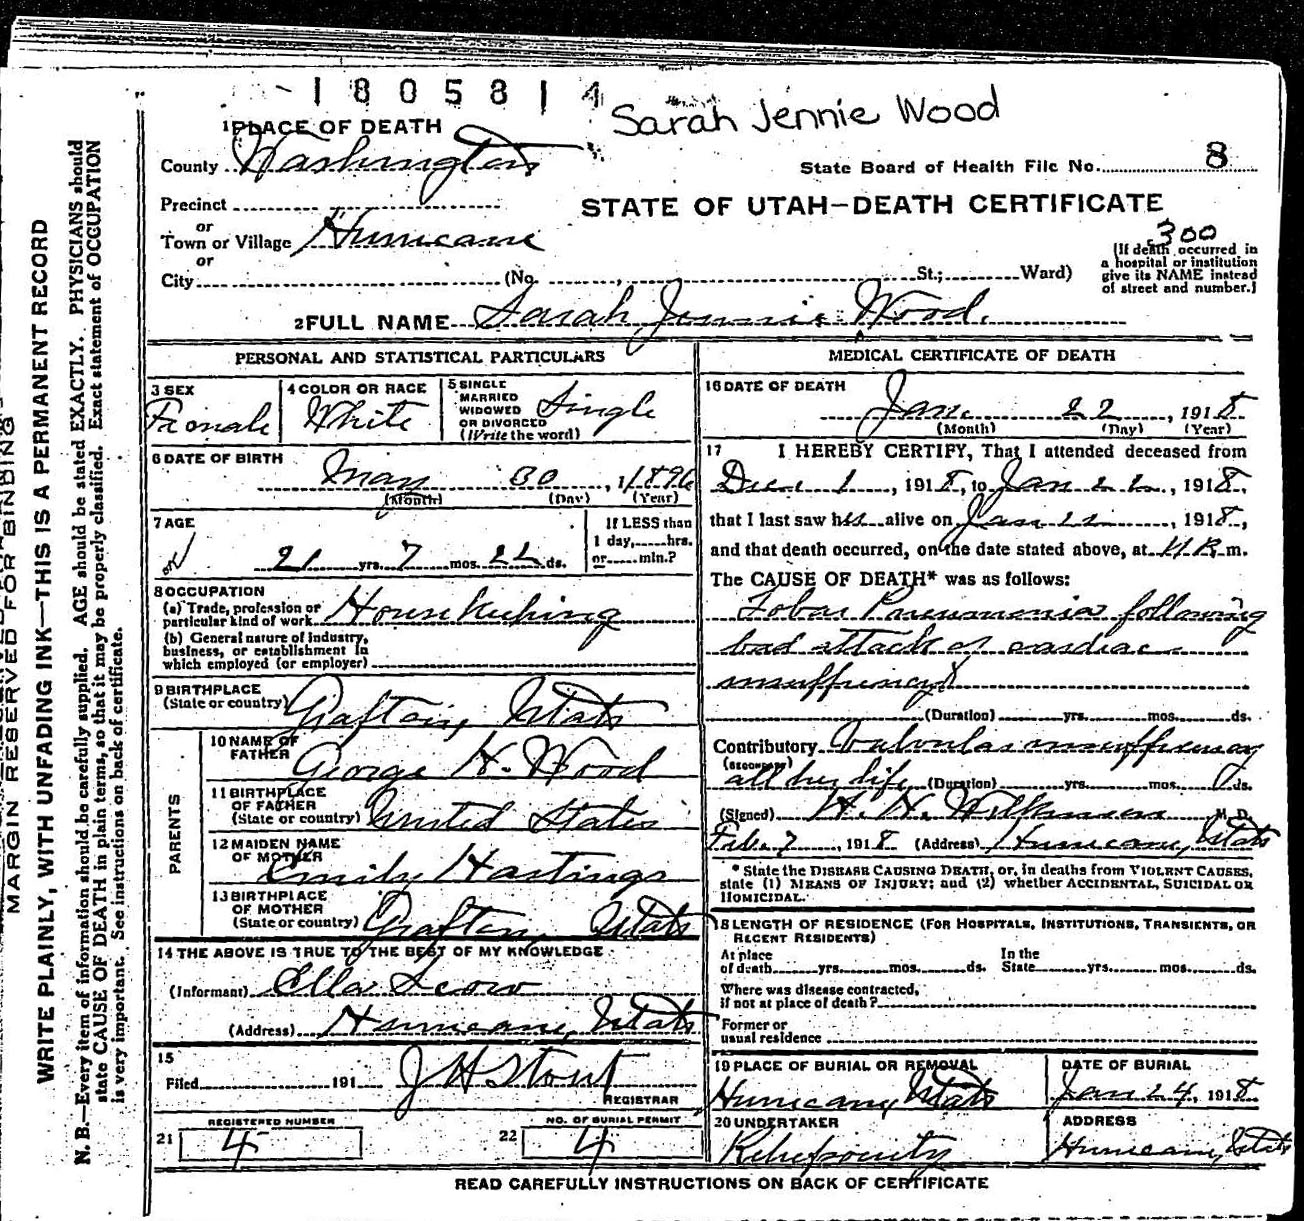 1805814
Sarah Jennie Wood
1 PLACE OF DEATH
County Washington
State Board of Health File No. 8
Precinct
or
Town or Village Hurricane
or
City (No. St.; Ward)
STATE OF UTAH—DEATH CERTIFICATE
300
(If death occurred in
a hospital or institution
give its NAME instead
of street and number.)
2 FULL NAME Sarah Jennie Wood.
PERSONAL AND STATISTICAL PARTICULARS
3 SEX
Female
4 COLOR OR RACE
White
5 SINGLE
MARRIED
WIDOWED
OR DIVORCED
(Write the word)
Single
6 DATE OF BIRTH
May 30, 1896
(Month) (Day) (Year)
7 AGE
21 yrs. 7 mos. 22 ds.
If LESS than
1 day, hrs.
or min.?
8 OCCUPATION
(a) Trade, profession or
particular kind of work Housekeeping
(b) General nature of industry,
business, or establishment in
which employed (or employer)
9 BIRTHPLACE
(State or country) Grafton, Utah
PARENTS
10 NAME OF
FATHER George H. Wood
11 BIRTHPLACE
OF FATHER
(State or country) United States
12 MAIDEN NAME
OF MOTHER Emily Hastings
13 BIRTHPLACE
OF MOTHER
(State or country) Grafton, Utah
14 THE ABOVE IS TRUE TO THE BEST OF MY KNOWLEDGE
(Informant) Ella
(Address) Hurricane, Utah
15
Filed 191 J H Stout
REGISTRAR
21 REGISTERED NUMBER
4
22 NO. OF BURIAL PERMIT
4
MEDICAL CERTIFICATE OF DEATH
16 DATE OF DEATH
Jan. 22, 1918
(Month) (Day) (Year)
17 I HEREBY CERTIFY, That I attended deceased from
Dec 1, 1918, to Jan 22, 1918,
that I last saw her alive on Jan 22, 1918,
and that death occurred, on the date stated above, at m.
The CAUSE OF DEATH* was as follows:
Lobar Pneumonia following
bad attack of cardiac
insuffiency
(Duration) yrs. mos. ds.
Contributory Valvular insuffiency
(SECONDARY)
all her life (Duration) yrs. mos. ds.
(Signed) H. H. Wilkinson M. D.
Feb. 7, 1918 (Address) Hurricane, Utah
* State the DISEASE CAUSING DEATH, or, in deaths from VIOLENT CAUSES,
state (1) MEANS OF INJURY; and (2) whether ACCIDENTAL, SUICIDAL OR
HOMICIDAL.
18 LENGTH OF RESIDENCE (FOR HOSPITALS, INSTITUTIONS, TRANSIENTS, OR
RECENT RESIDENTS)
At place
of death yrs. mos. ds.
In the
State yrs. mos. ds.
Where was disease contracted,
if not at place of death?
Former or
usual residence
19 PLACE OF BURIAL OR REMOVAL
Hurricane, Utah
DATE OF BURIAL
Jan 24, 1918
20 UNDERTAKER
ADDRESS
Hurricane, Utah
READ CAREFULLY INSTRUCTIONS ON BACK OF CERTIFICATE
MARGIN RESERVED FOR BINDING
WRITE PLAINLY, WITH UNFADING INK—THIS IS A PERMANENT RECORD
N. B.—Every item of information should be carefully supplied. AGE should be stated EXACTLY. PHYSICIANS should
state CAUSE OF DEATH in plain terms, so that it may be properly classified. Exact statement of OCCUPATION
is very important. See instructions on back of certificate.